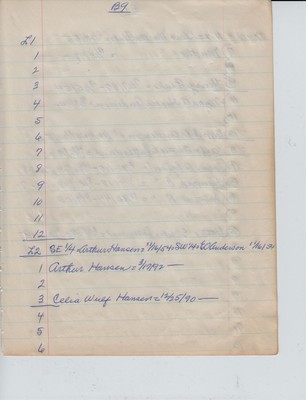 B9
L1
1
2
3
4
5
6
7
8
9
10
11
12
L2 SE 1/4 Arthur Hansen = SW 1/4 = Anderson
1 Arthur Hansen =
2
3 Celia Wulf Hansen = 12/25/90 —
4
5
6